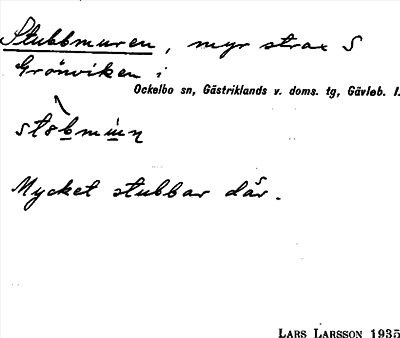 Stubbmuren, myr strax S
Grönviken i
Ockelbo sn, Gästriklands v. doms. tg, Gävleb. l.
Mycket stubbar där.
LARS LARSSON 1935